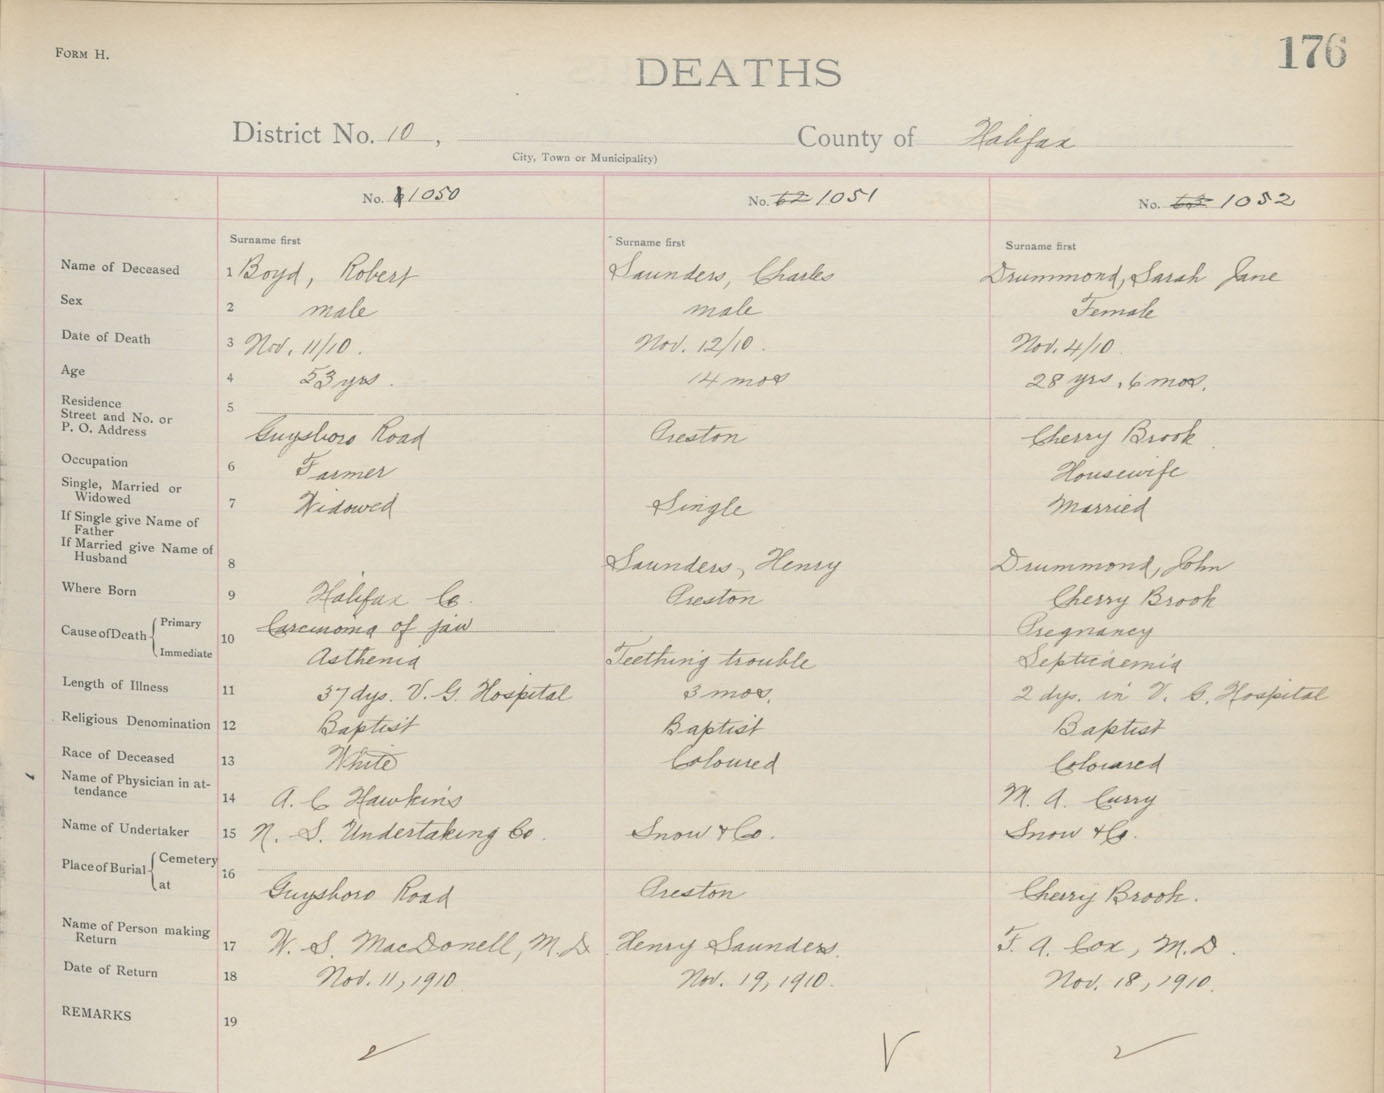 FORM H.
176
DEATHS
District No. 10, County of Halifax
City, Town or Municipality)
No. 1050 No. 62 1051 No. 63 1052
Surname first Surname first Surname first
Name of Deceased 1 Boyd, Robert Saunders, Charles Drummond, Sarah Jane
Sex 2 male male Female
Date of Death 3 Nov. 11/10. Nov. 12/10. Nov. 4/10.
Age 4 53 yrs. 14 mos 28 yrs, 6 mos.
Residence 5
Street and No. or
P. O. Address Guysboro Road Preston Cherry Brook.
Occupation 6 Farmer Housewife
Single, Married or
Widowed 7 Widowed Single Married
If Single give Name of
Father
If Married give Name of
Husband 8 Saunders, Henry Drummond, John
Where Born 9 Halifax Co. Preston Cherry Brook
Cause of Death 10 Primary Carcinoma of jaw Pregnancy
Immediate Asthenia Teething trouble Septicaemia
Length of Illness 11 37 dys. V. G. Hospital 3 mos. 2 dys. in V. G. Hospital
Religious Denomination 12 Baptist Baptist Baptist
Race of Deceased 13 White Coloured Coloured
Name of Physician in at-
tendance 14 A. C Hawkins M. A. Curry
Name of Undertaker 15 N. S. Undertaking Co. Snow & Co. Snow & Co.
Place of Burial 16 Cemetery
at Guysboro Road Preston Cherry Brook.
Name of Person making
Return 17 W. S. MacDonell, M. D. Henry Saunders. F. A. Cox, M.D.
Date of Return 18 Nov. 11, 1910 Nov. 19, 1910. Nov. 18, 1910.
REMARKS 19